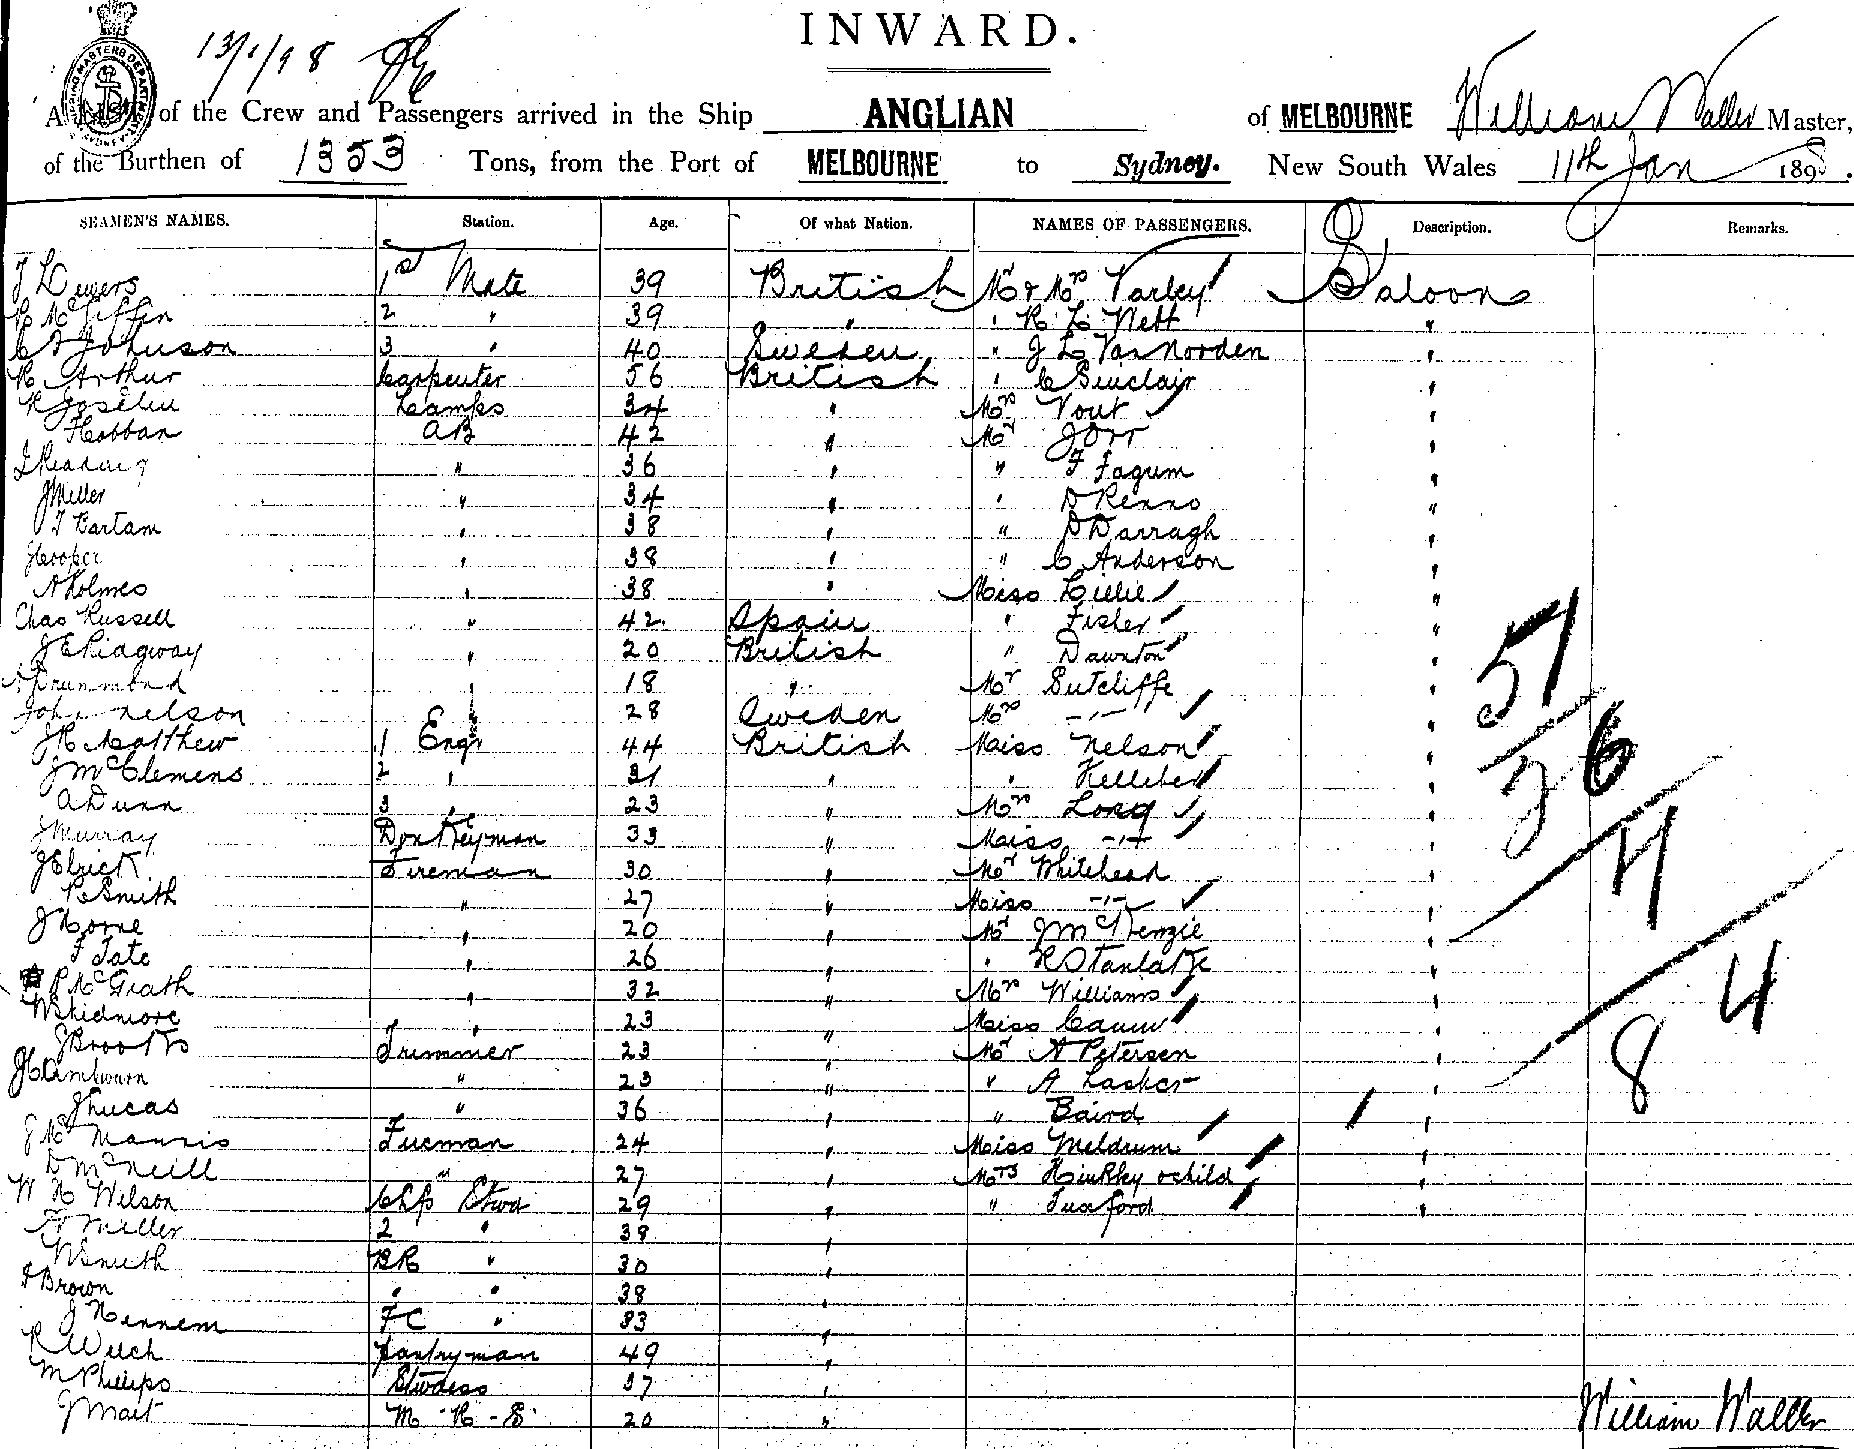 INWARD.
13/1/98
A LIST of the Crew and Passengers arrived in the Ship ANGLIAN of MELBOURNE William Waller Master,
of the Burthen of 1353 Tons, from the Port of MELBOURNE to Sydney. New South Wales 11th Jan 1898.
SEAMEN'S NAMES. Station. Age. Of what Nation. NAMES OF PASSENGERS. Description. Remarks.
1st Mate 39 British Mr & Mrs Varley Saloon
2 " 39 " " R. L. Nett "
Johnson 3 " 40 Sweden " J L Van Norden "
R Arthur Carpenter 56 British " C Sinclair "
R Joselin Lamps 34 " Mrs Vout "
Hobban AB 42 " Mr J Orr "
J Reading " 36 " " F Fagum "
J Miller " 34 " " D Renno "
T Bartam " 38 " " D Darragh "
J Cooper " 38 " " C Anderson "
A Holmes " 38 " Miss Lillie "
Chas Russell " 42 Spain " Fisher "
J E Ridgway " 20 British " Dawnton "
A Drummond " 18 " Mr Sutcliffe "
John Nelson " 28 Sweden Mrs -"- "
J R Matthew 1 Engr 44 British Miss Nelson "
J McClemens 2 " 31 " " Kelleher "
A Dunn 3 " 23 " Mrs Long "
J Murray Donkeyman 33 " Miss -"- "
J Elrick Fireman 30 " Mr Whitehead "
P Smith " 27 " Miss -"- "
J Horne " 20 " Mr J McKenzie "
F Tate " 26 " " R Stanlake "
P McGrath " 32 " Mrs Williams "
W Skidmore " 23 " Miss "
J Brooks Trimmer 23 " Mr A Petersen "
" 23 " " A Lasker "
J Lucas " 36 " " Baird "
Fireman 24 " Miss Meldrum "
D McNeill " 27 " Mrs Hinkley & child "
W H Wilson Chf Stwd 29 " " Tuxford "
A Miller 2 " 38 "
W Smith BR " 30 "
J Brown " " 38 "
J Hennem FC " 33 "
R Welch Pantryman 49 "
M Phillips Stwdess 37 "
J Mait M. R. S. 20 "
57
26
4
8 4
William Waller